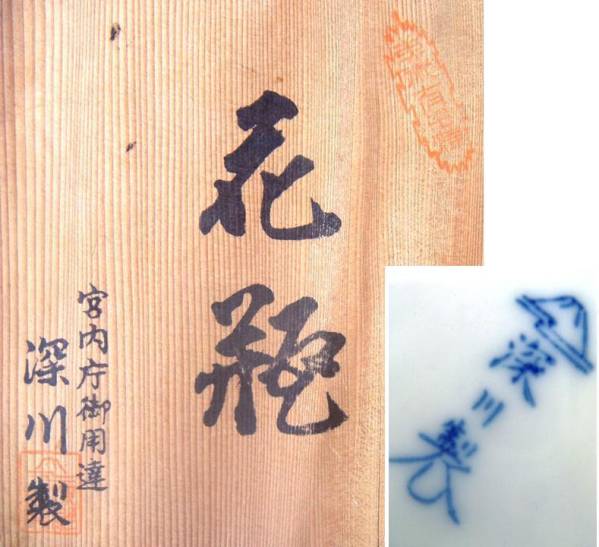 花瓶
宮内庁御用達
深川製
深川製